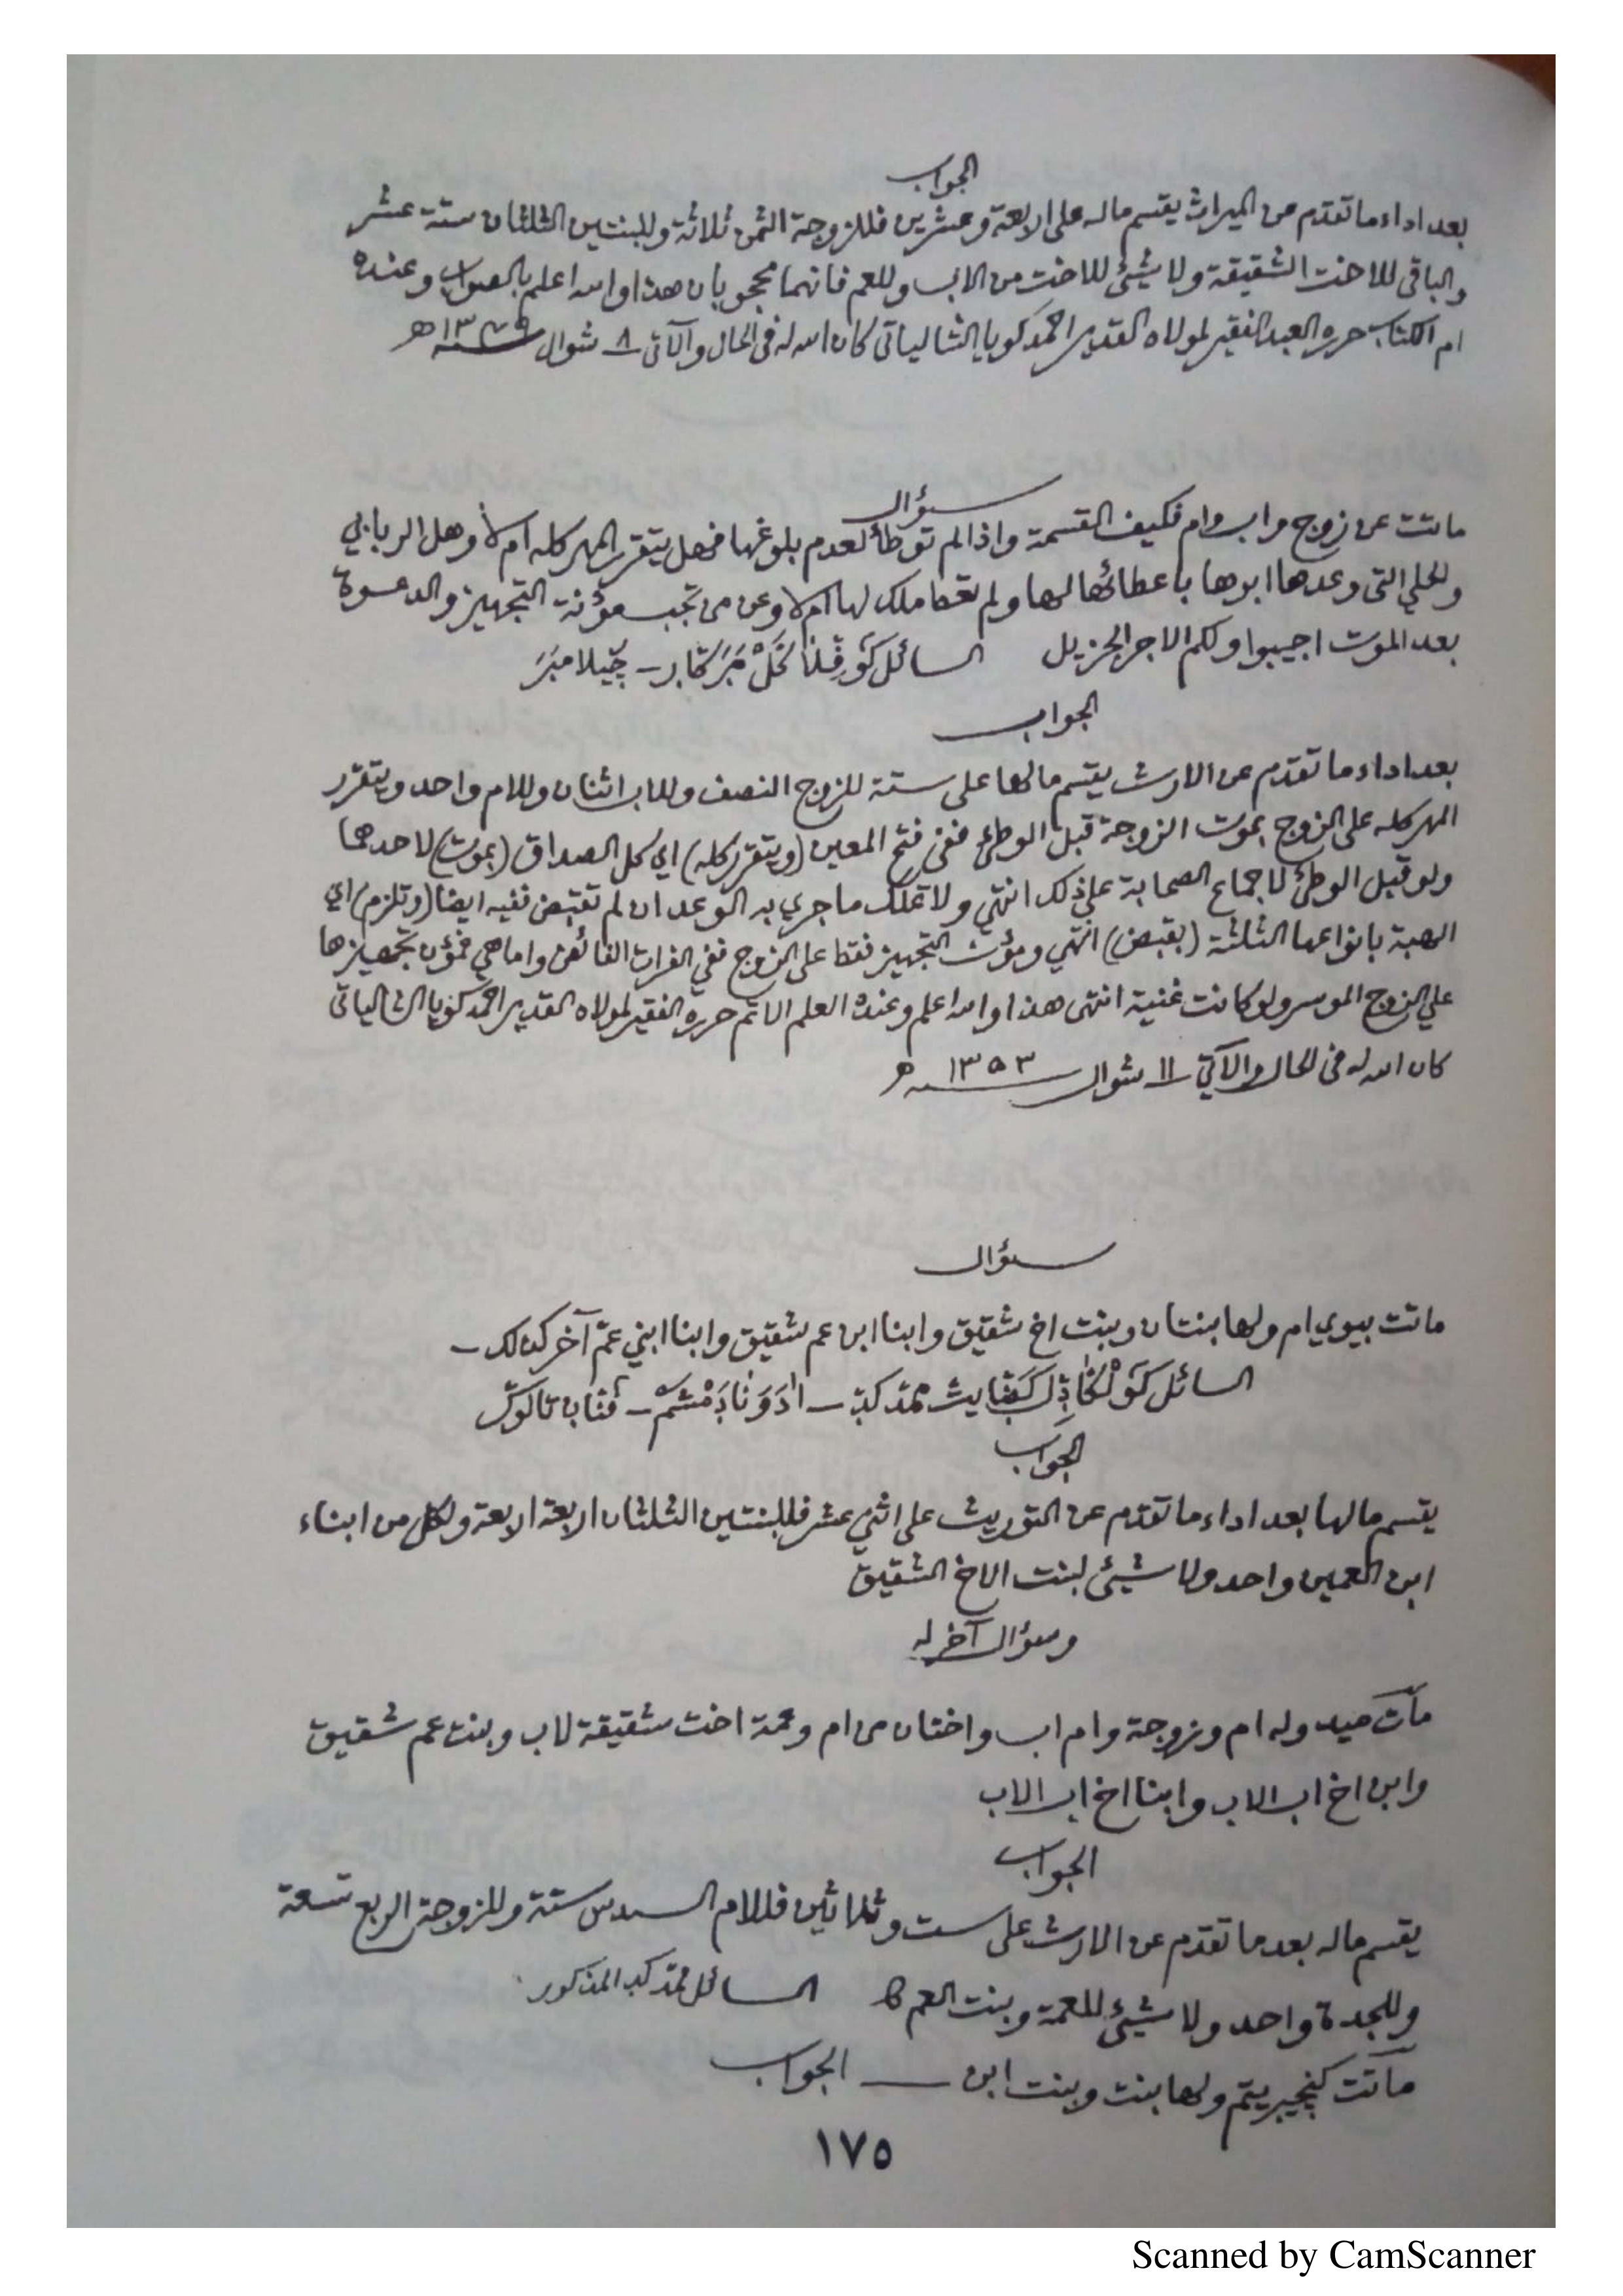 الجواب
بعد اداء ما تقدم من الميراث يقسم ماله على الاربعة وعشرين فللزوجة الثمن ثلاثة وللبنتين الثلثان ستة عشر
والباقى للاخت الشقيقة ولا شيئ للاخت من الاب وللعم فانهما محجوبان هذا والله اعلم بالصواب وعنده
ام الكتاب حرره العبد الفقير لمولاه القدير احمد كويا الشالياتى كان الله له فى الحال والآتى ٨ شوال
سؤال
ماتت عن زوج واب وام فكيف القسمة واذا لم توطأ لعدم بلوغها فهل يتقرر المهر كله ام لا وهل الربابي
والحلي التى وعدها ابوها باعطائها لها ولم تعط ملك لها ام لا وعن من تجب مؤنة التجهيز والدعوة
بعد الموت اجيبوا ولكم الاجر الجزيل السائل
الجواب
بعد اداء ما تقدم عن الارث يقسم مالها على ستة للزوج النصف وللاب اثنان وللام واحد ويتقرر
المهر كله على الزوج بموت الزوجة قبل الوطئ ففى فتح المعين (ويتقرر كله) اي كل الصداق (بموت) لاحدهما
ولو قبل الوطئ لاجماع الصحابة على ذلك انتهى ولا تملك ما جرى به التوعد ان لم تقبض ففيه ايضا (وتلزم) اي
الهبة بانواعها الثلثة (بقبض) انتهى ومؤنة التجهيز فقط على الزوج ففي الفرات الفائض واما هي فمؤن تجهيزها
علي الزوج الموسر ولو كانت غنية انتهى هذا والله اعلم وعنده العلم الاتم حرره الفقير لمولاه القدير احمد كويا الشالياتى
كان الله له فى الحال والآتي ١١ شوال سنة ١٣٥٣ ه
سؤال
ماتت بيوي ام ولها بنتان وبنت اخ شقيق وابنا ابن عم شقيق وابنا ابني عم آخر كذلك ـ
السائل
الجواب
يقسم مالها بعد اداء ما تقدم عن التوريث على اثني عشر فللبنتين الثلثان اربعة اربعة ولكل من ابناء
ابن العمين واحد ولا شيئ لبنت الاخ الشقيق
وسؤال آخر له
مات صيد وله ام وزوجة وام اب واختان من ام وعمة اخت شقيقة لاب وبنت عم شقيق
وابن اخ اب الاب وابنا اخ اب الاب
الجواب
يقسم ماله بعد ما تقدم عن الارث على ست وثلاثين فللام السدس ستة وللزوجة الربع تسعة
وللجدة واحد ولا شيئ للعمة وبنت العم السائل محمد كد المذكور
ماتت ولها بنت وبنت ابن ـــ الجواب
١٧٥
Scanned by CamScanner